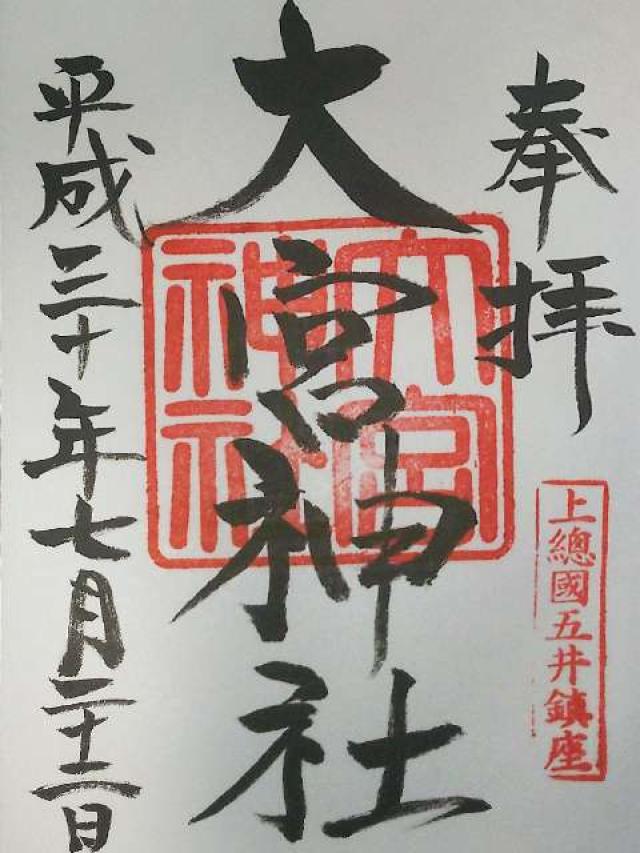 奉拝
上總國五井鎮座
大宮神社
大宮神社
平成三十年七月二十二日